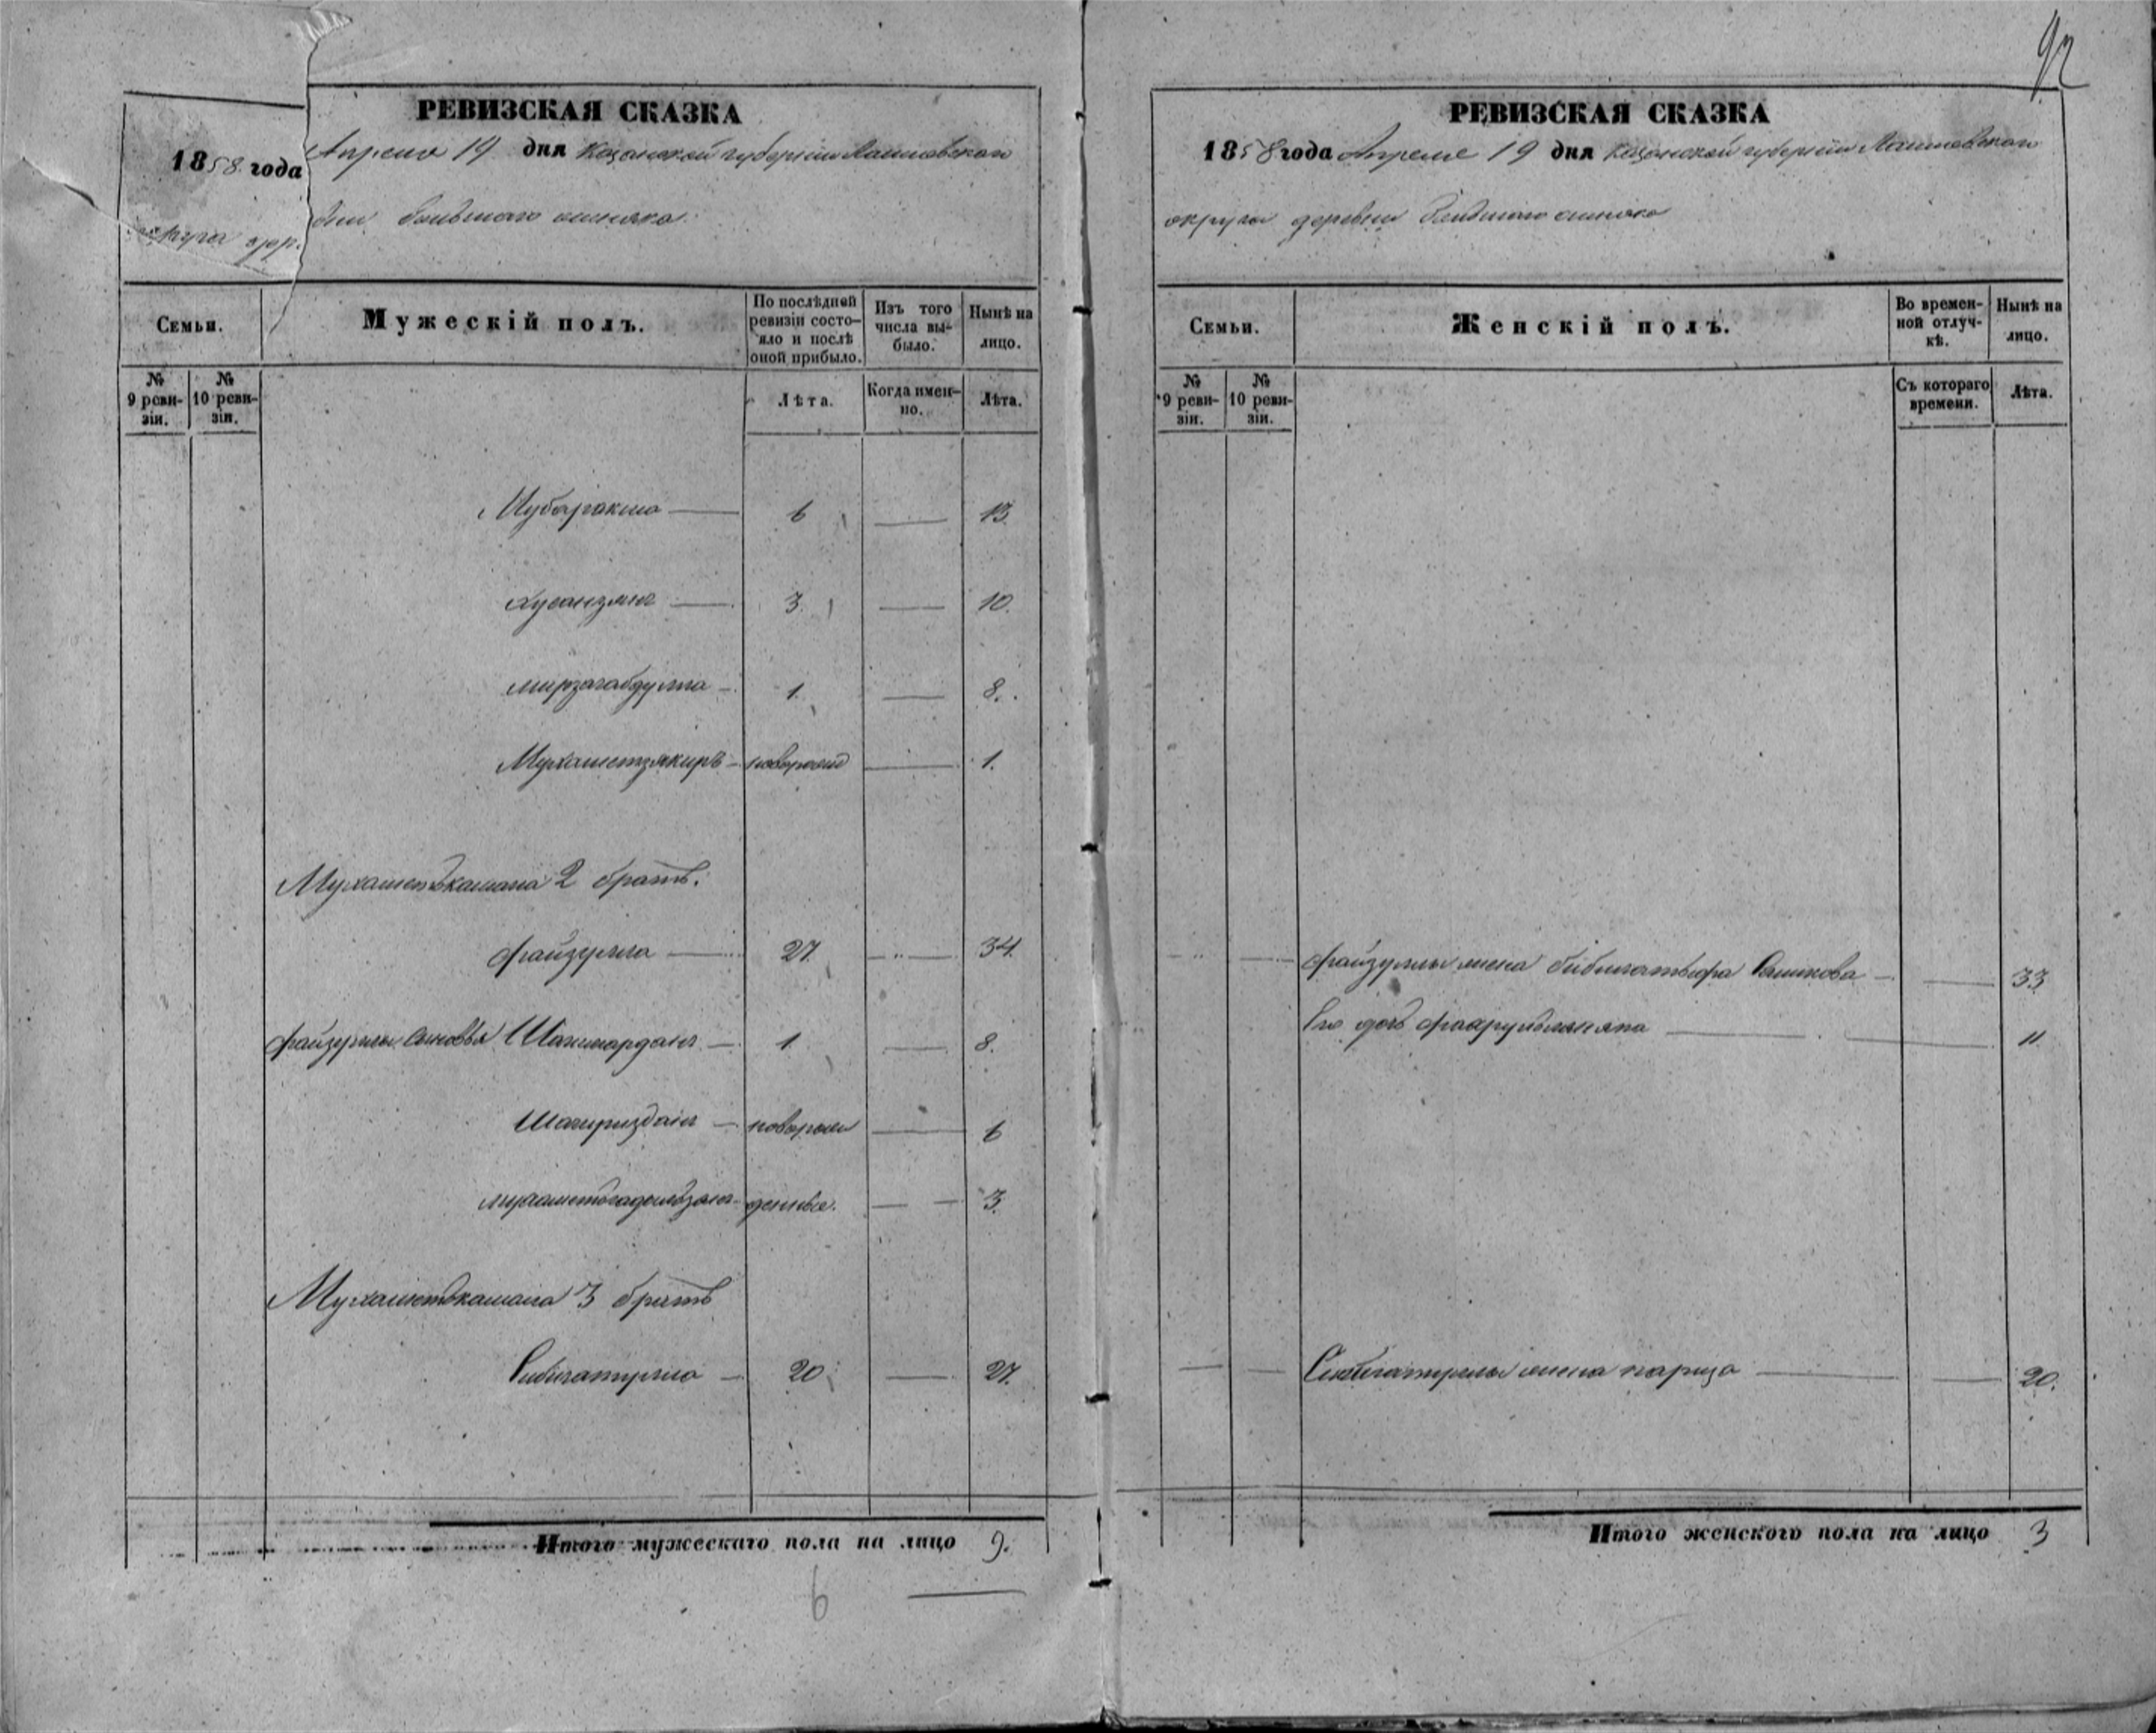 92
РЕВИЗСКАЯ СКАЗКА
1858 года Апреля 19 дня Казанской губернии Лаишевскаго
округа деревни большаго
Семьи.
Мужескій полъ.
По послѣдней ревизіи состо-
яло и послѣ оной прибыло.
Изъ того числа вы-
было.
Нынѣ на лицо.
№ 9 реви-
зіи.
№ 10 реви-
зіи.
Лѣта.
Когда имен-
но.
Лѣта.
Мубаракша 6 13.
Хусаинъ 3. 10.
мирзагабдулла 1. 8.
Мухаметзякиръ новорож 1.
Мухаметькамала 2 братъ.
Файзулла 27. 34.
Файзуллы сыновья Шагимарданъ 1. 8.
Шагириздан новорож 6
3.
Мухаметькамала 3 братъ
Сибгатулла 20 27.
Итого мужескаго пола на лицо 9.
6
РЕВИЗСКАЯ СКАЗКА
1858 года Апреля 19 дня Казанской губернии Лаишевскаго
округа деревни большаго
Семьи.
Женскій полъ.
Во времен-
ной отлуч-
кѣ.
Нынѣ на лицо.
№ 9 реви-
зіи.
№ 10 реви-
зіи.
Съ котораго времени.
Лѣта.
Файзуллы жена 33
Его дочь 11
Сибгатуллы жена 20.
Итого женского пола на лицо 3